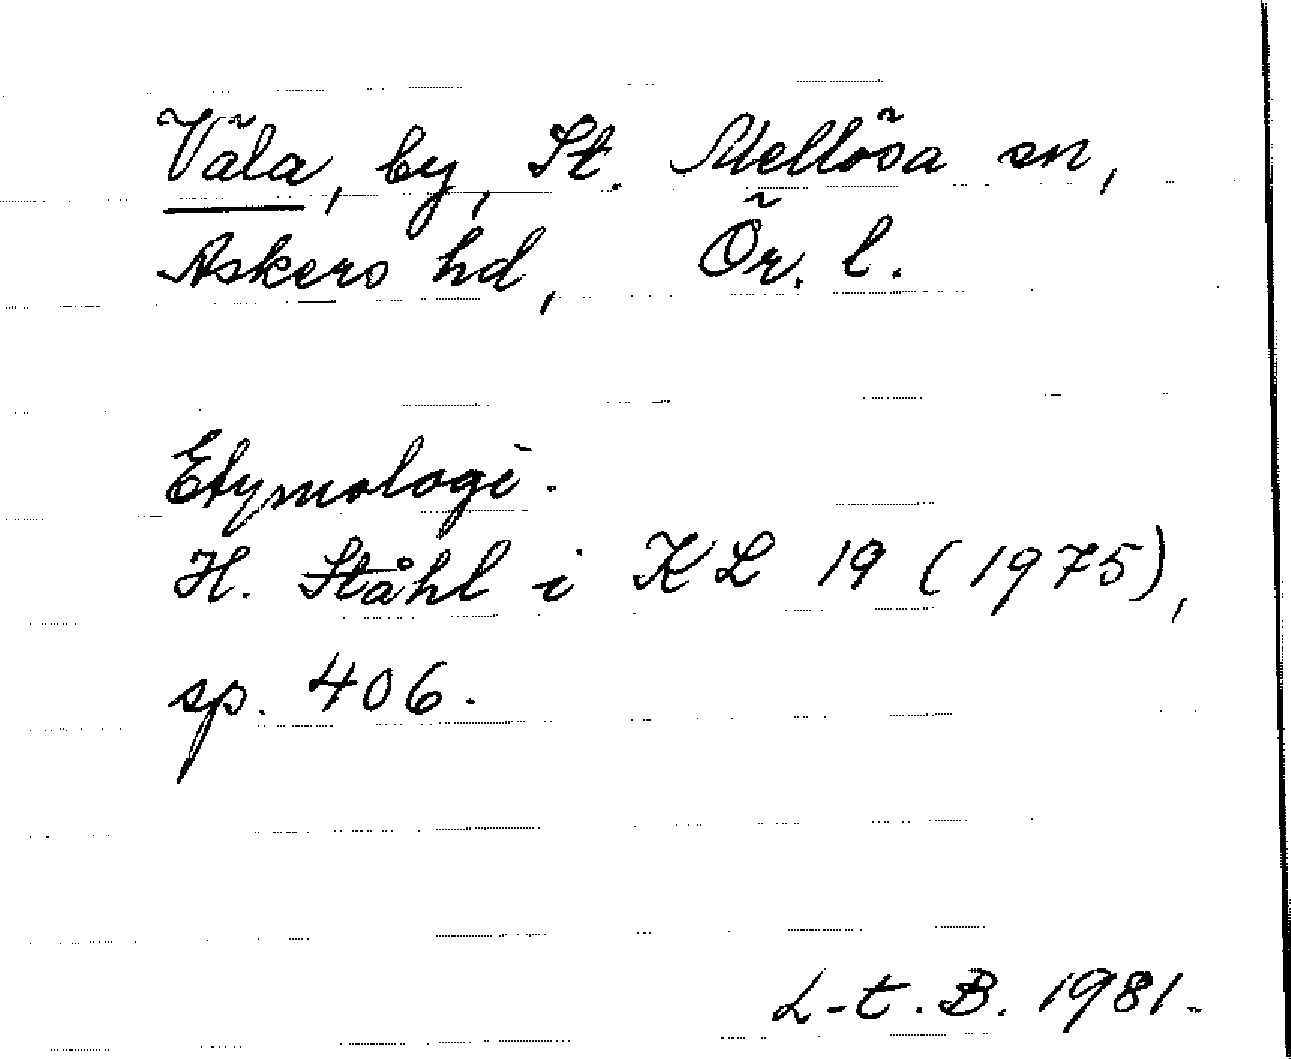 Väla, by, St. Mellösa sn,
Askers hd, Ör. l.
Etymologi.
H. Ståhl i KL 19 (1975),
sp. 406.
L-t. B. 1981.